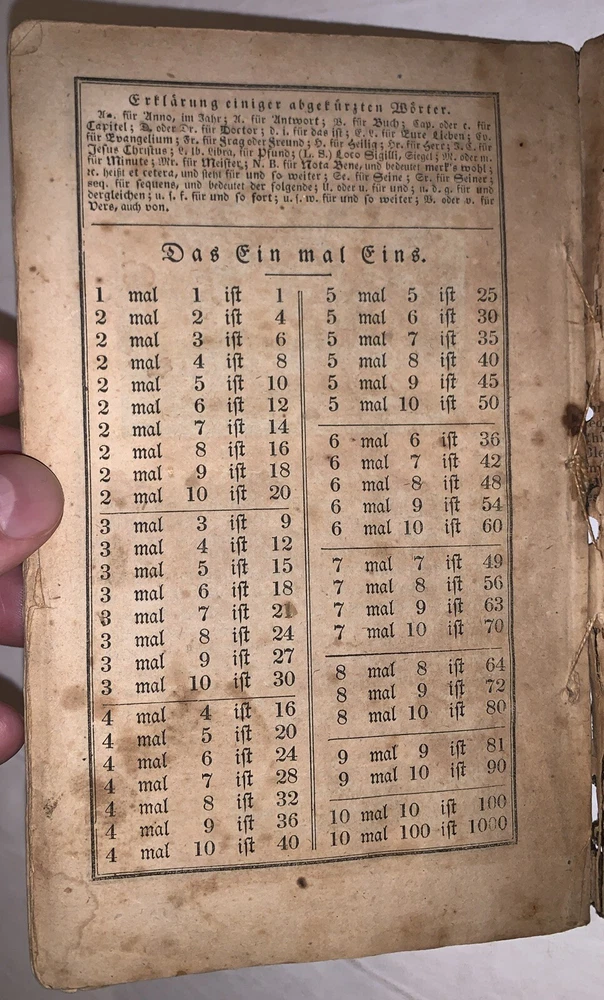 Erklärung einiger abgekürzten Wörter.
Ao. für Anno, im Jahr; A. für Antwort; B. für Buch; Cap. oder c. für
Capitel; D. oder Dr. für Doctor; d. i. für das ist; E. L. für Eure Lieben; Ev.
für Evangelium; Fr. für Frag oder Freund; H. für Heilig; Hr. für Herr; J. C. für
Jesus Christus; L. lb. Libra, für Pfund; (L. S.) Loco Sigilli, Siegel; M. oder m.
für Minute; Mr. für Meister; N. B. für Nota Bene, und bedeutet merk's wohl;
ꝛc. heißt et cetera, und steht für und so weiter; Se. für Seine; Sr. für Seiner;
seq. für sequens, und bedeutet der folgende; U. oder u. für und; u. d. g. für und
dergleichen; u. s. f. für und so fort; u. s. w. für und so weiter; V. oder v. für
Vers, auch von.
Das Ein mal Eins.
1 mal 1 ist 1
2 mal 2 ist 4
2 mal 3 ist 6
2 mal 4 ist 8
2 mal 5 ist 10
2 mal 6 ist 12
2 mal 7 ist 14
2 mal 8 ist 16
2 mal 9 ist 18
2 mal 10 ist 20
3 mal 3 ist 9
3 mal 4 ist 12
3 mal 5 ist 15
3 mal 6 ist 18
3 mal 7 ist 21
3 mal 8 ist 24
3 mal 9 ist 27
3 mal 10 ist 30
4 mal 4 ist 16
4 mal 5 ist 20
4 mal 6 ist 24
4 mal 7 ist 28
4 mal 8 ist 32
4 mal 9 ist 36
4 mal 10 ist 40
5 mal 5 ist 25
5 mal 6 ist 30
5 mal 7 ist 35
5 mal 8 ist 40
5 mal 9 ist 45
5 mal 10 ist 50
6 mal 6 ist 36
6 mal 7 ist 42
6 mal 8 ist 48
6 mal 9 ist 54
6 mal 10 ist 60
7 mal 7 ist 49
7 mal 8 ist 56
7 mal 9 ist 63
7 mal 10 ist 70
8 mal 8 ist 64
8 mal 9 ist 72
8 mal 10 ist 80
9 mal 9 ist 81
9 mal 10 ist 90
10 mal 10 ist 100
10 mal 100 ist 1000